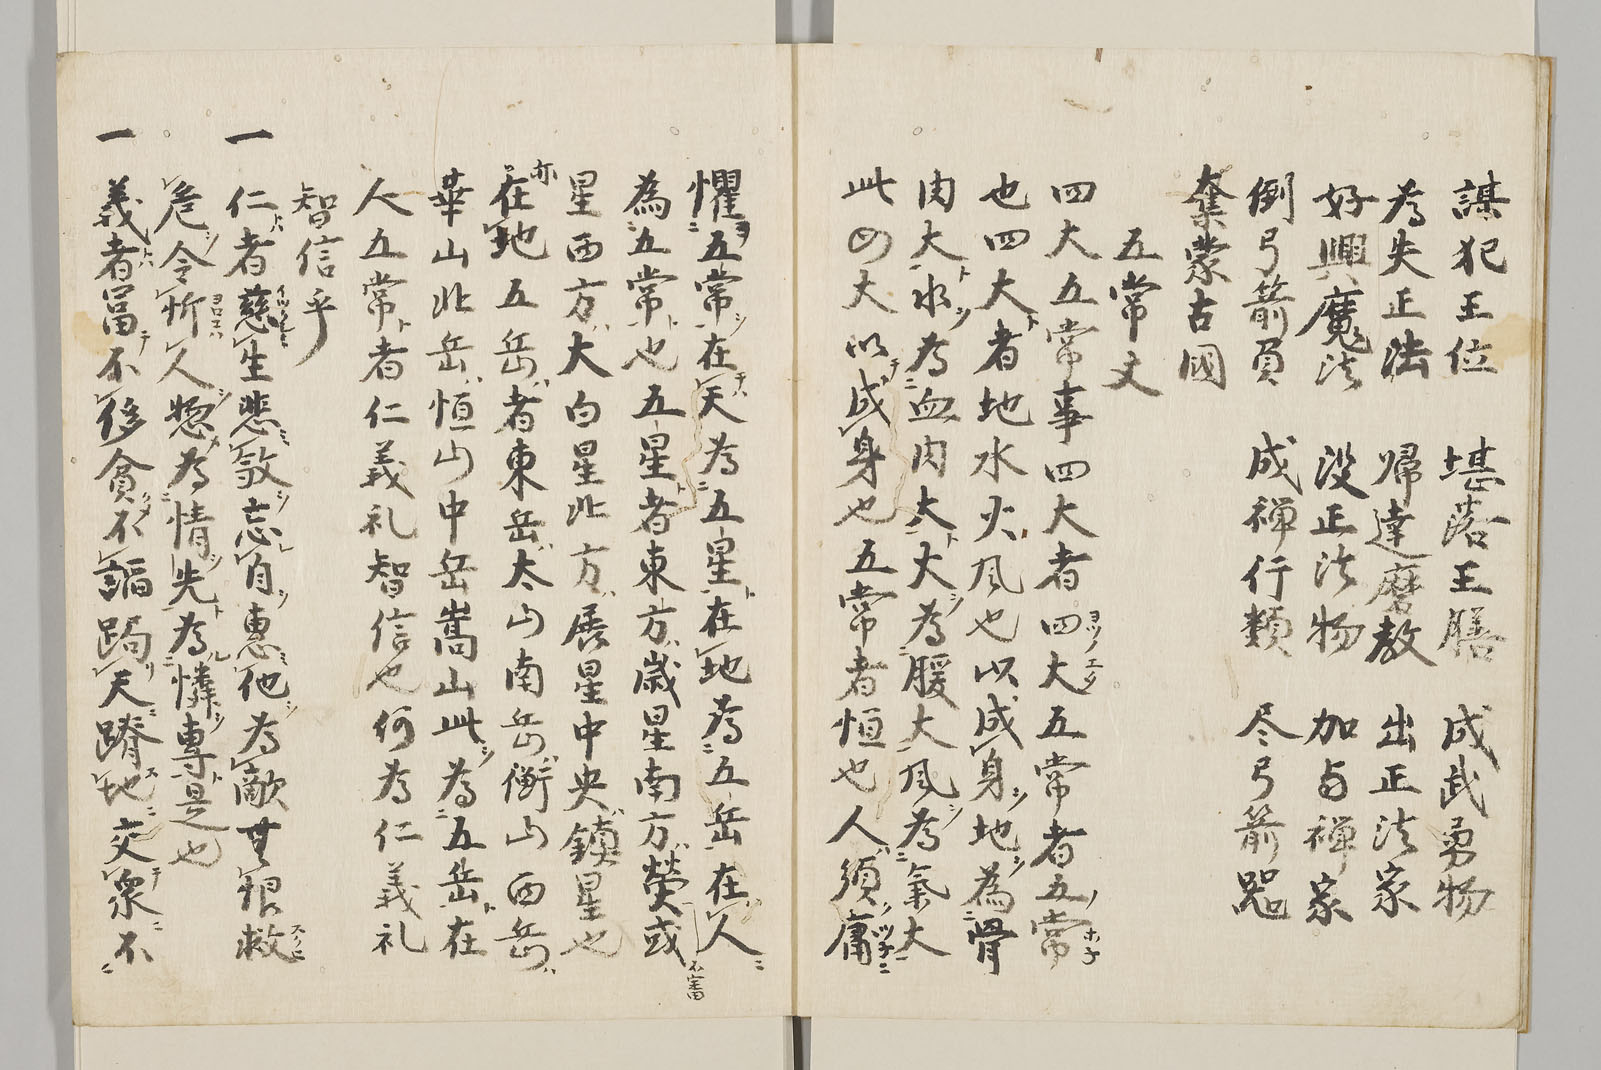 謀犯王位 堪落王膳 成武勇物
為失正法 帰達磨教 出正法家
好興魔法 没正法物 加与禅家
倒弓箭員 成禅行類 尽弓箭咒
奪蒙古國
五常文
四大五常事四大者四大五常者五常
也四大者地水火風也以成身地為骨
肉大水為血肉大火為腝大風為氣大
此四大以成身也五常者恒也人須庸
懼五常在天為五星在地為五岳在人
為五常也五星者東方歳星南方熒或
星西方大白星北方辰星中央鎮星也
亦在地五岳者東岳太山南岳衡山西岳
華山北岳恒山中岳嵩山此為五岳在
人五常者仁義礼智信也何為仁義礼
智信乎
一 仁者慈生悲敦忘自恵他為敵無恨救
危令忻人愁為情先為憐専是也
一 義者冨不侈貪不謟跼天蹐地交衆不